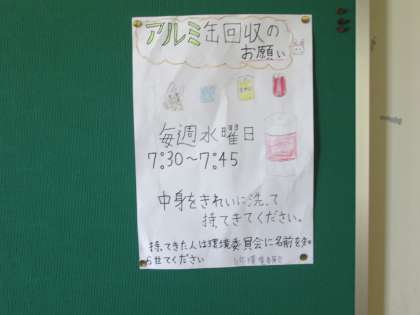 アルミ缶回収の
お願い
毎週水曜日
7:30〜7:45
中身をきれいに洗って
持ってきてください。
持ってきた人は環境委員会に名前を知
らせてください